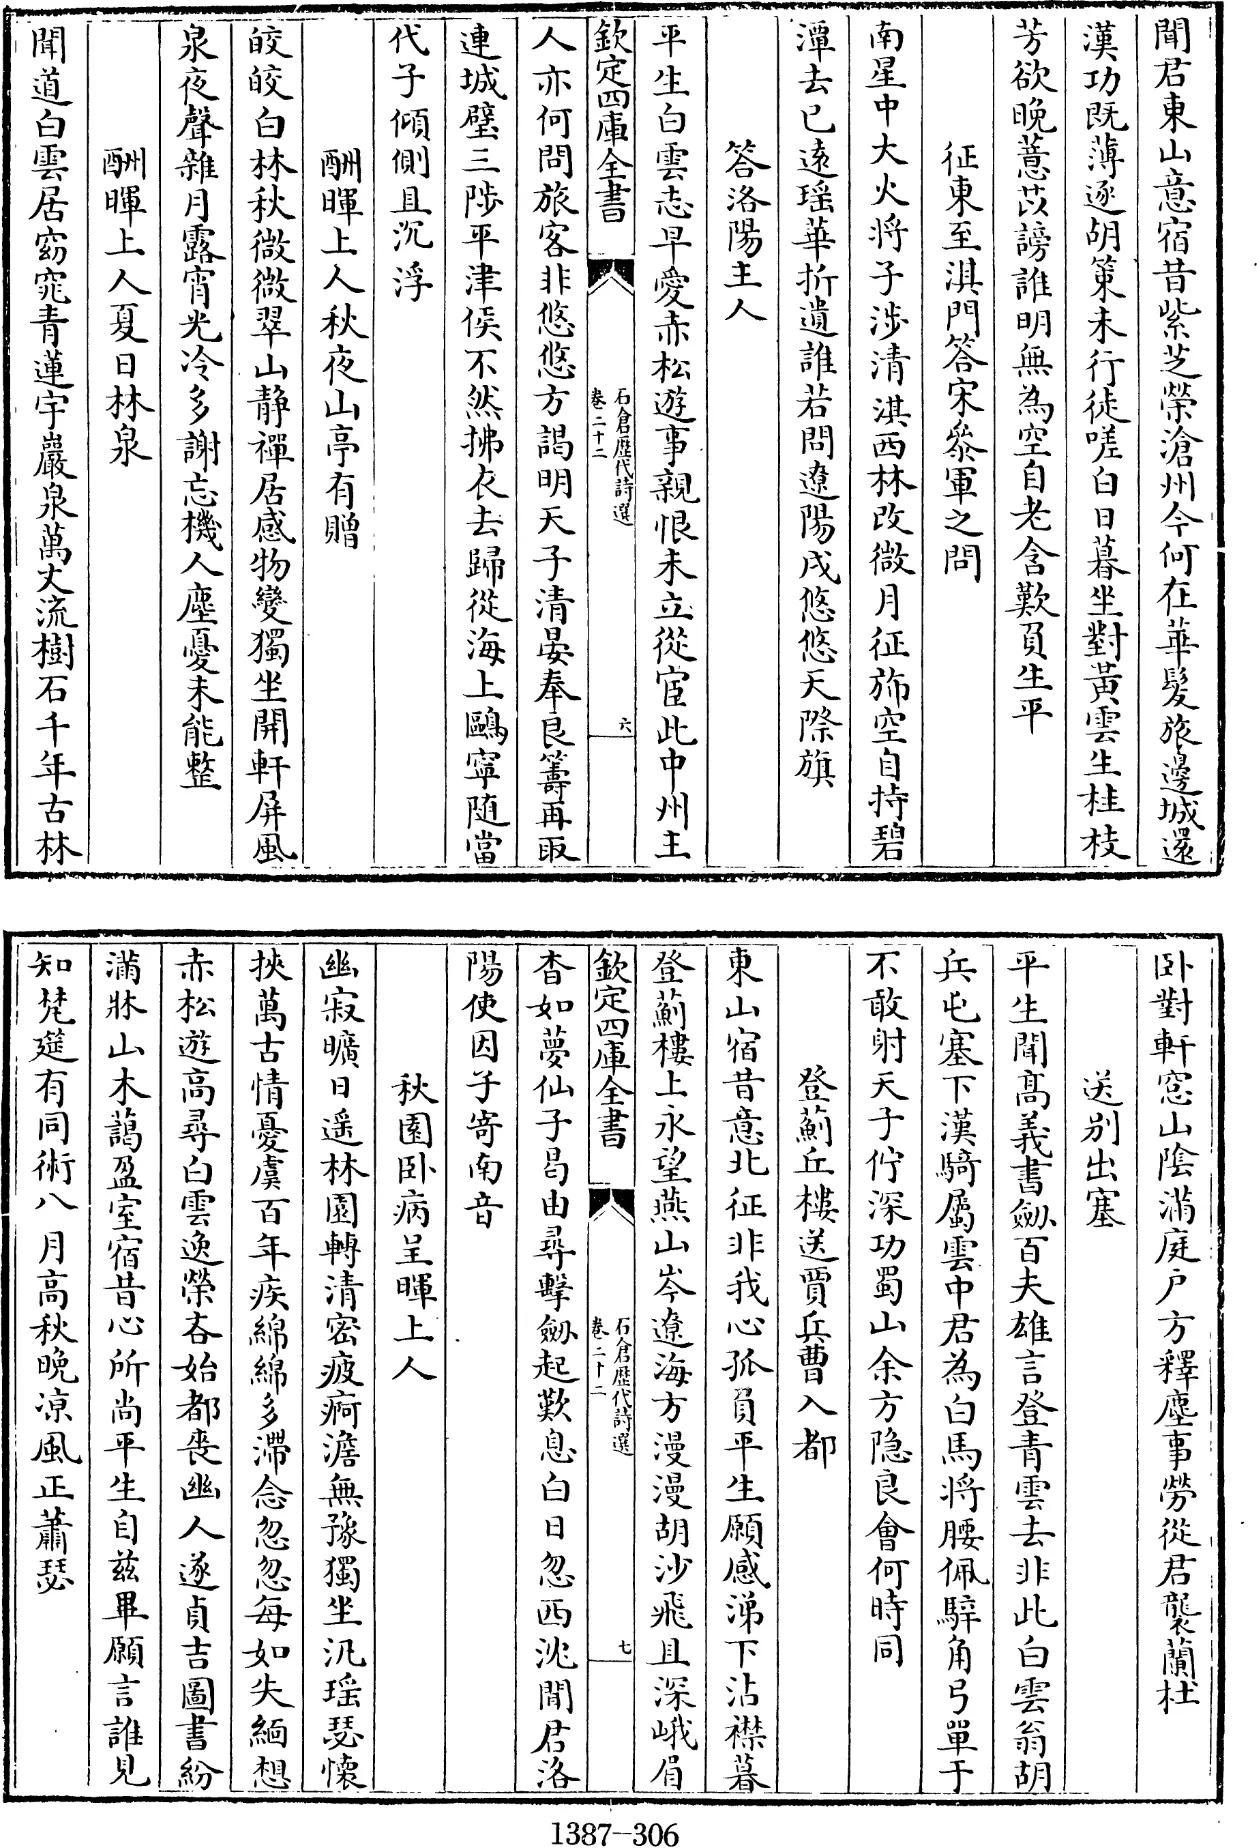 聞君東山意宿昔紫芝榮滄州今何在華髮旅邊城還
漢功既薄逐胡策未行徒嗟白日暮坐對黄雲生桂枝
芳欲晚薏苡謗誰明無為空自老含歎負生平
征東至淇門答宋參軍之問
南星中大火將子涉清淇西林改微月征斾空自持碧
潭去已遠瑶華折遺誰若問遼陽戍悠悠天際旗
答洛陽主人
平生白雲志早愛赤松遊事親恨未立從宦此中州主
欽定四庫全書
石倉歷代詩選
卷二十二
六
人亦何問旅客非悠悠方謁明天子清晏奉良籌再取
連城璧三陟平津侯不然拂衣去歸從海上鷗寧随當
代子傾側且沉浮
酬暉上人秋夜山亭有贈
皎皎白林秋微微翠山静禪居感物變獨坐開軒屏風
泉夜聲雜月露宵光冷多謝忘機人塵憂未能整
酬暉上人夏日林泉
聞道白雲居窈窕青蓮宇巖泉萬丈流樹石千年古林
卧對軒窓山陰滿庭户方釋塵事勞從君襲蘭杜
送别出塞
平生聞髙義書劒百夫雄言登青雲去非此白雲翁胡
兵屯塞下漢騎屬雲中君為白馬將腰佩騂角弓單于
不敢射天子佇深功蜀山余方隐良會何時同
登薊丘樓送賈兵曹入都
東山宿昔意北征非我心孤負平生願感涕下沾襟暮
登薊樓上永望燕山岑遼海方漫漫胡沙飛且深峨眉
欽定四庫全書
石倉歷代詩選
卷二十二
七
杳如夢仙子曷由尋擊劒起歎息白日忽西沈聞君洛
陽使因子寄南音
秋園卧病呈暉上人
幽寂曠日遥林園轉清密疲痾澹無豫獨坐汎瑶瑟懷
挾萬古情憂虞百年疾綿綿多滯念忽忽每如失緬想
赤松遊高尋白雲逸榮吝始都喪幽人遂貞吉圖書紛
滿牀山木藹盈室宿昔心所尚平生自兹畢願言誰見
知梵筵有同術八月高秋晚凉風正蕭瑟
1387-306